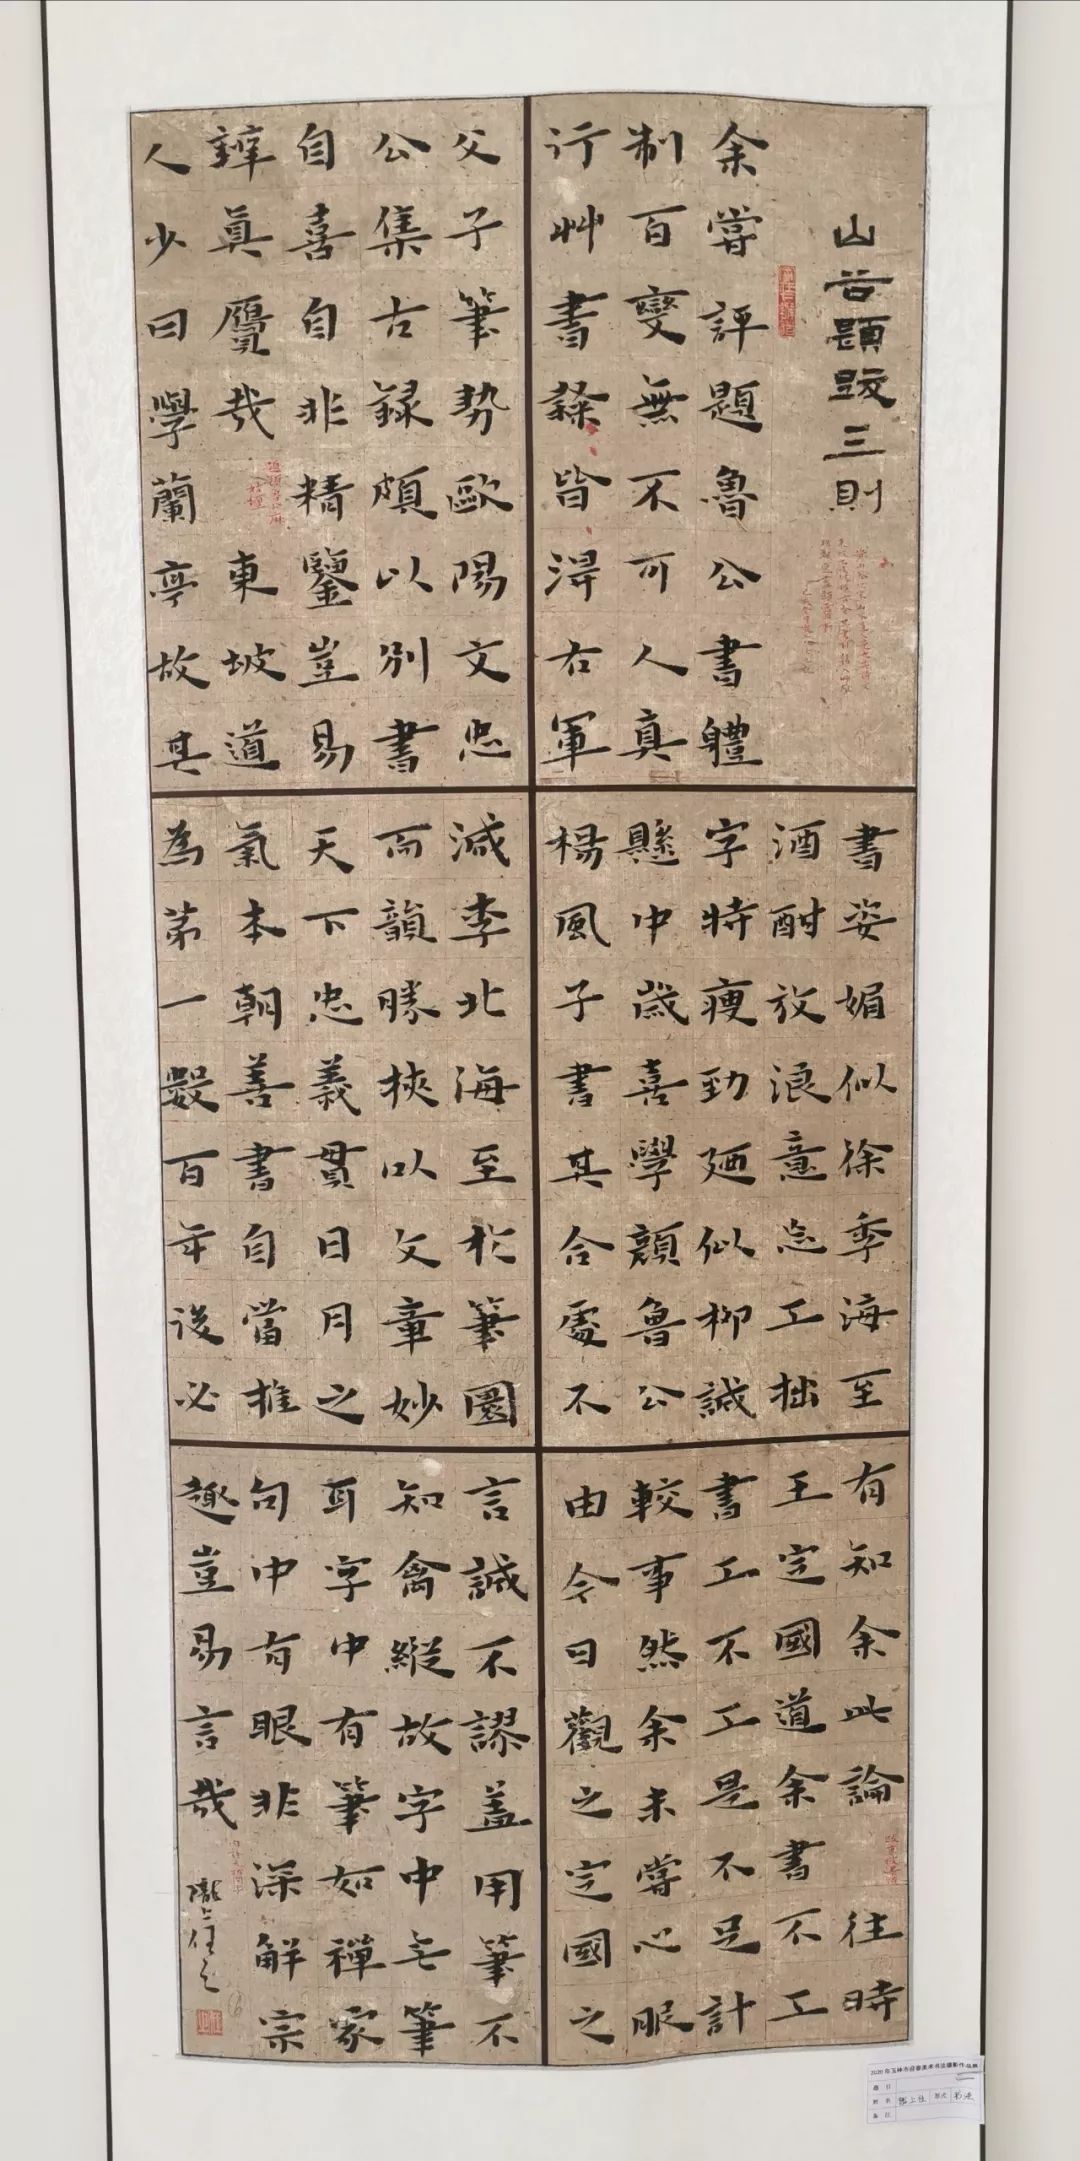 山谷題跋三則
余嘗評題魯公書體
制百變無不可人真
行艸書隸皆得右軍
父子筆勢歐陽文忠
公集古録頗以別書
自喜自非精鑒豈易
辨眞贋哉 東坡道
人少日學蘭亭故其
書姿媚似徐季海至
酒酣放浪意忘工拙
字特瘦勁廼似柳誠
懸中歲喜學顏魯公
楊風子書其合處不
減李北海至於筆圜
而韻勝挾以文章妙
天下忠義貫日月之
氣本朝善書自當推
為第一數百年後必
有知余此論 往時
王定國道余書不工
書工不工是不足計
較事然余未嘗心服
由今日觀之定國之
言誠不謬盖用筆不
知禽縱故字中无筆
耳字中有筆如禪家
句中有眼非深解宗
趣豈易言哉